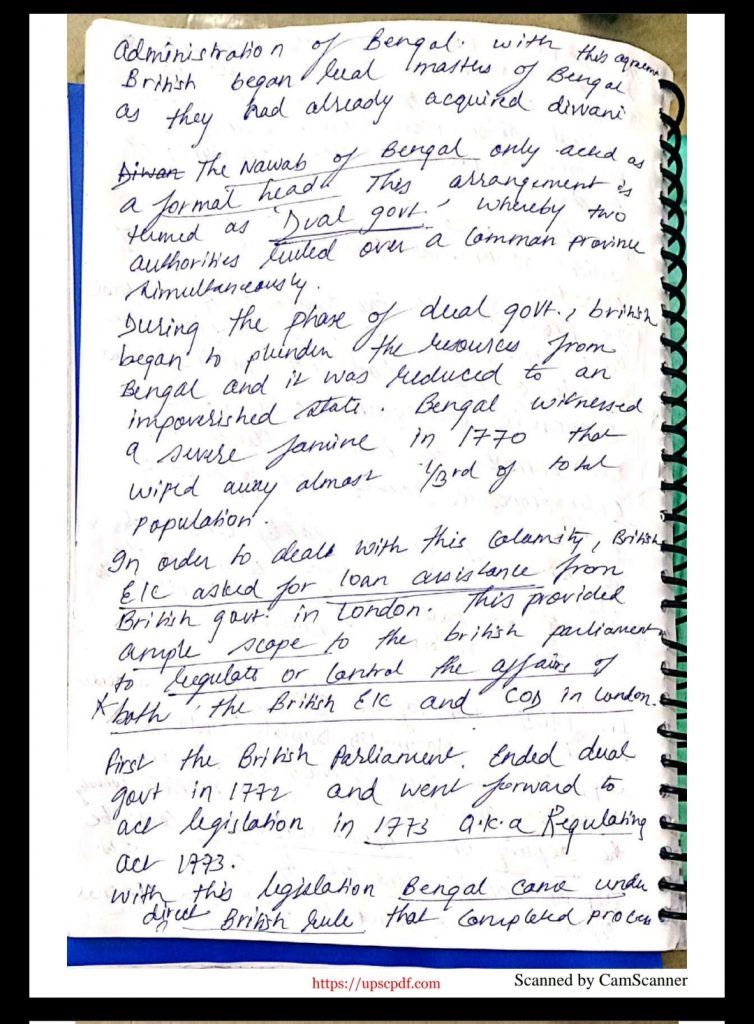 Administration of Bengal. with this agreeme
British began real masters of Bengal
as they had already acquired diwani
Diwan The Nawab of Bengal only acted as
a formal head. This arrangement is
termed as 'Dual govt.' whereby two
authorities ruled over a common province
simultaneously.
During the phase of dual govt., british
began to plunder the resources from
Bengal and it was reduced to an
impoverished state. Bengal witnessed
a severe famine in 1770 that
wiped away almost 1/3rd of total
population.
In order to deal with this calamity, British
EIC asked for loan assistance from
British govt. in London. This provided
ample scope to the british parliament
to regulate or control the affairs of
* both the British EIC and COD in London.
First the British Parliament. Ended dual
govt in 1772 and went forward to
act legislation in 1773 a.k.a Regulating
act 1773.
with this legislation Bengal came under
direct British rule that completed process
https://upscpdf.com
Scanned by CamScanner